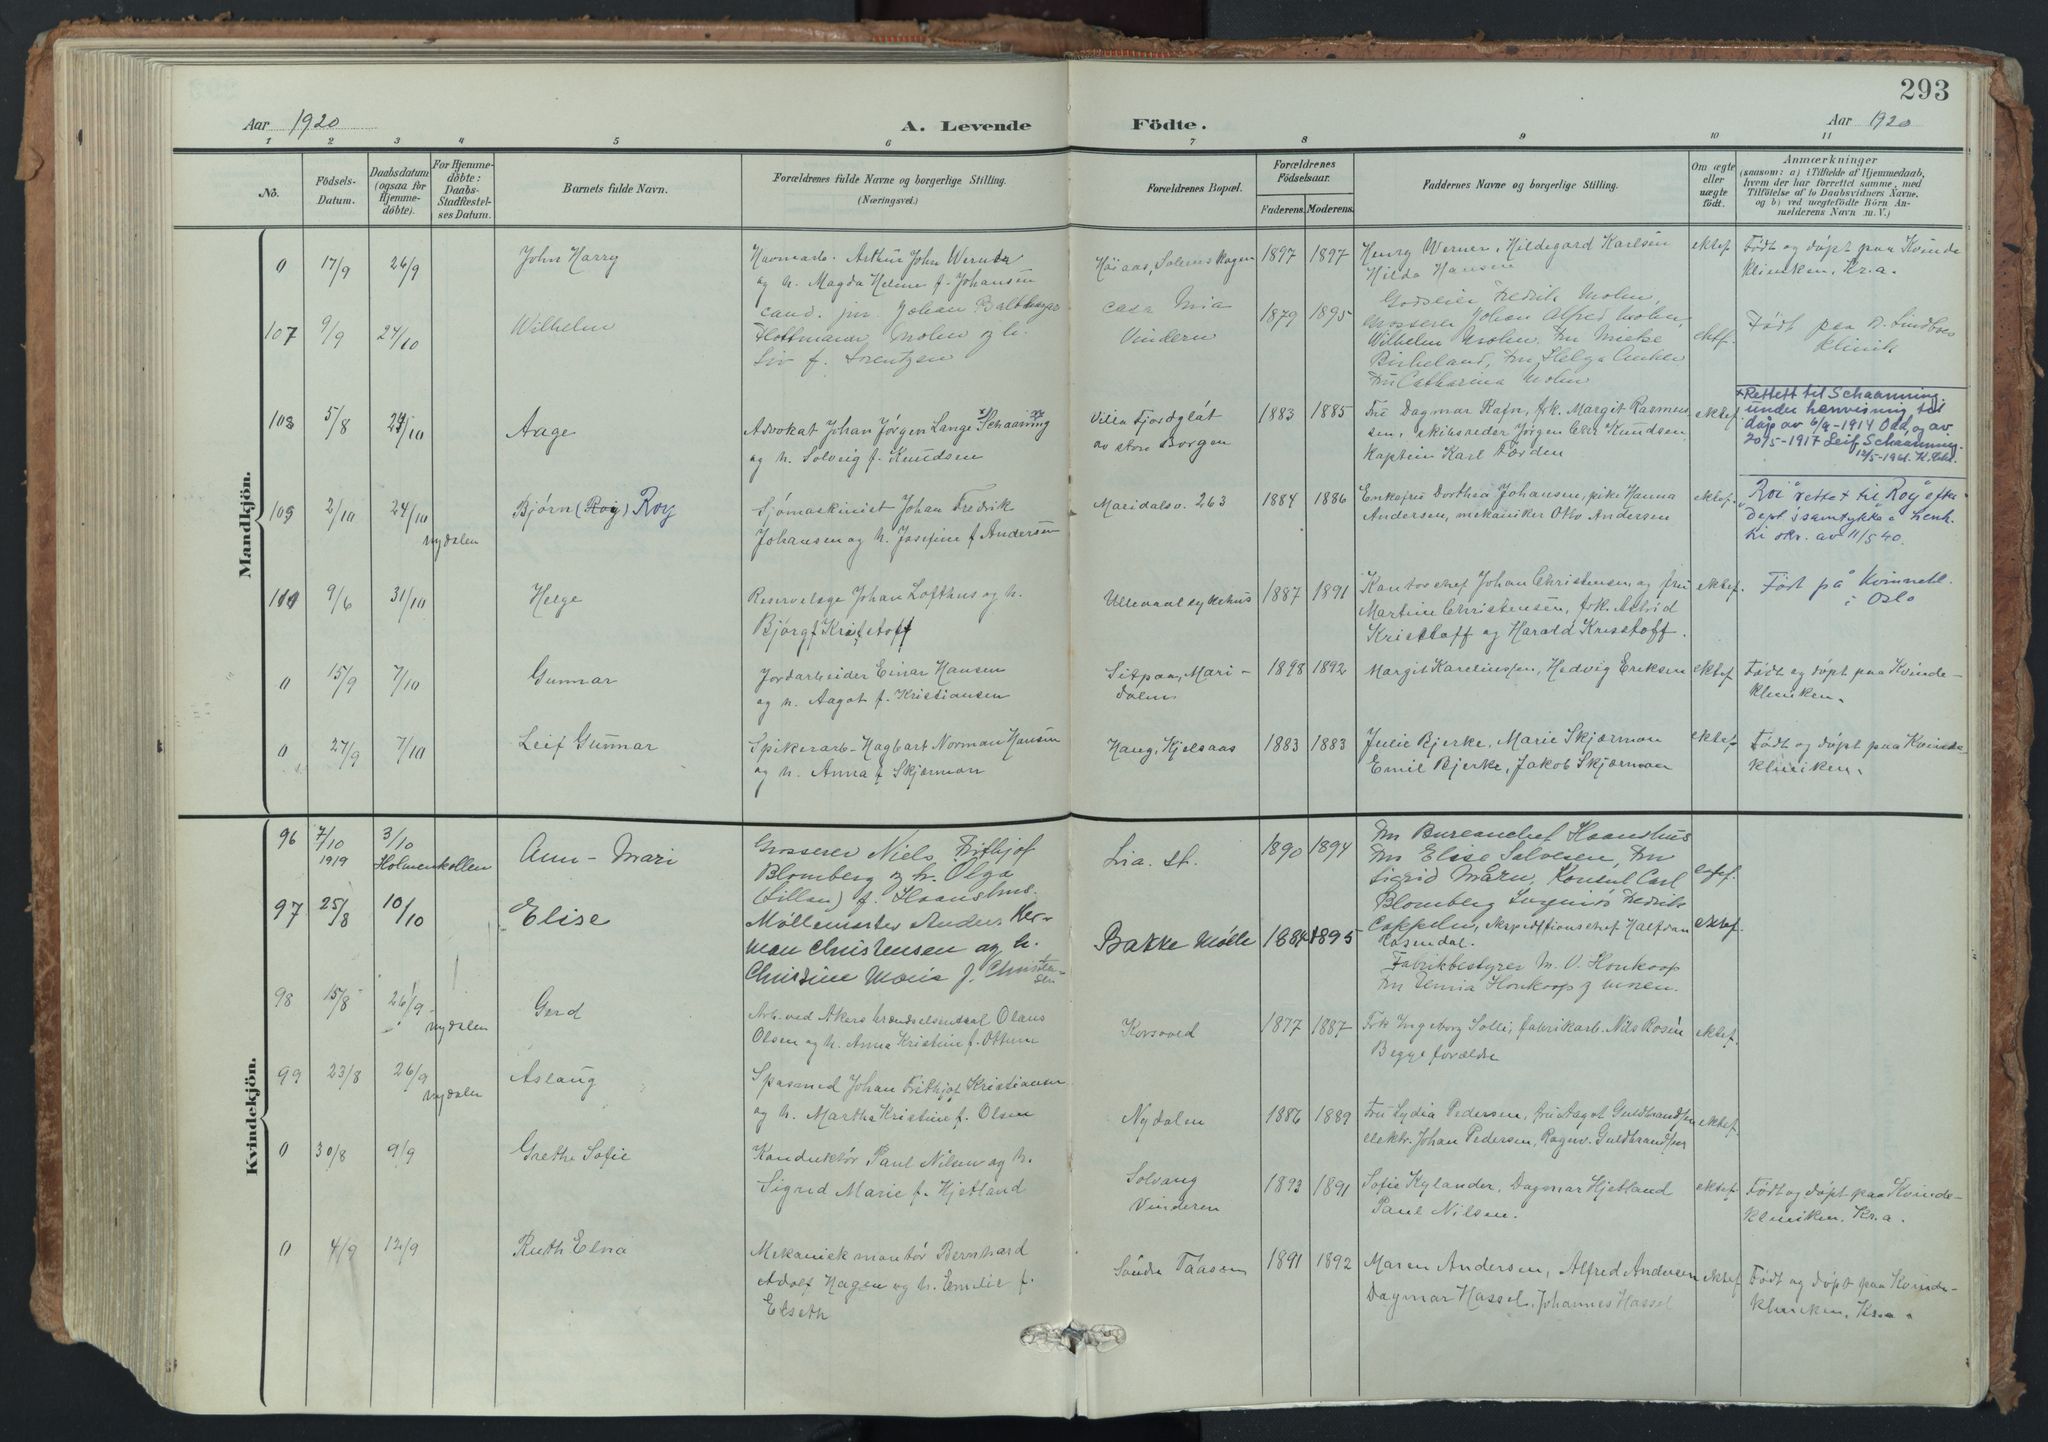 293
Aar 1920
A. Levende Födte.
Aar 1920
1 2 3 4 5 6 7 8 9 10 11
No.
Födsels-
Datum.
Daabsdatum
(ogsaa for
Hjemme-
döbte).
For Hjemme-
döbte:
Daabs-
Stadfæstel-
ses Datum.
Barnets fulde Navn.
Forældrenes fulde Navne og borgerlige Stilling.
(Næringsvei.)
Forældrenes Bopæl.
Forældrenes
Födselsaar.
Faderens. Moderens.
Faddernes Navne og borgerlige Stilling.
Om ægte
eller
uægte
födt.
Anmærkninger
(saasom: a) i Tilfælde af Hjemmedaab,
hvem der har forrettet samme, med
Tilföielse af to Daabsvidners Navne,
og b) ved uægtefödte Börn An-
melderens Navn m. V.)
Mandkjön.
0 17/9 26/9 John Harry
Havnearb. Arthur John Werner
og h. Magda Helene f. Johansen
Høiaas, Solemskogen 1897 1897
Henry Werner, Hildegard Karlsen
Hilda Hansen
ektef.
Født og døpt paa Kvinde
kliniken, Kr.a.
107 9/9 24/10 Wilhelm
cand. jur. Johan Balthazar
Flottmann Mohn og h.
Siv f. Lorentzen
Casa Mia
Vindern
1879 1895
Godseier Fredrik Mohn,
Grosserer Johan Alfred Mohn,
Wilhelm Mohn, Fru Mieke
Birkeland, Fru Helga Anker
Fru Catharina Mohn
ektf.
Født paa Dr. Lindboes
klinik
108 5/8 24/10 Aage
Advokat Johan Jörgen Lange Schaaning
og h. Solveig f. Knudsen
Villa Fjordgløt
av store Borgen
1883 1885
Fru Dagmar Rafn, frk. Margit Rasmus
sen, skibsreder Jörgen Chr. Knudsen
Kaptein Karl Færden
ektef.
× Rettett til Schaanning
under henvisning til
dåp av 6/9-1914 Odd, og av
20/5-1917 Leif Schaanning.
12/5-1961. K. Chr.
109 2/10 24/10 Nydalen Bjørn (Roy) Roy
Sjømaskinist Johan Fredrik
Johansen og h. Josefine f. Andersen
Maridalsv. 263 1884 1886
Enkefru Dorthea Johansen, pike Hanna
Andersen, mekaniker Otto Andersen
ektef.
"Roi" rettet til "Roy" efter
Dept's samtykke i
skr. av 11/5 40.
110 9/6 31/10 Helge
Reservelæge Johan Lofthus og h.
Bjørg f. Kristoff
Ullevaal sykehus 1887 1891
Kontorchef Johan Christensen og fru
Martine Christensen, frk. Astrid
Kristoff og Harald Kristoff.
ektef.
Født på Kvinnekl.
i Oslo
0 15/9 7/10 Gunnar
Jordarbeider Einar Hansen
og h. Aagot f. Kristiansen
Sitpaa, Mari-
dalen
1898 1892
Margit Kareliussen, Hedvig Eriksen
ektef.
Født og døpt paa Kvinde-
kliniken.
0 27/9 7/10 Leif Gunnar
Spikerarb. Hagbart Norman Hansen
og h. Anna f. Skjærmon
Haug, Kjelsaas 1883 1883
Julie Bjerke, Marie Skjærmon
Emil Bjerke, Jakob Skjærmon
ektef.
Født og døpt paa Kvinde
kliniken.
Kvindekjön.
96 7/10 1919 3/10 Holmenkollen Ann-Mari
Grosserer Niels Frithjof
Blomberg og h. Olga
(Lillan) f. Haanshus.
Lia. st. 1890 1894
Fru Bureauchef Haanshus
Fru Elise Salvesen, Fru
Sigrid Mårn, Konsul Carl
Blomberg
ektef.
97 25/8 10/10 Elise
Möllemester Anders Her-
man Christensen og h.
Christine Marie f. Christen-
sen
Bakke Mölle 1884 1895
Fredrik
Cappelen, ekspeditionschef Halfdan
Rosendal.
Fabrikbestyrer M. O. Honkoop
Fru Honkoop
ektef.
98 15/8 26/9 Nydalen Gerd
Arb. ved Akers brændselscentral Olaus
Olsen og h. Anna Kristine f. Ottum
Korsvoll 1877 1887
Frk Ingeborg Solli, fabrikarb. Nils Rosén
Begge forældre
ektef.
99 23/8 26/9 Nydalen Aslaug
Johan Frithjof Kristiansen
og h. Martha Kristine f. Olsen
Nydalen 1886 1889
Fru Lydia Pedersen, fru Aagot Guldbrandsen
elektr. Johan Pedersen, Ragnv. Guldbrandsen
ektef.
0 30/8 9/9 Grethe Sofie
Konduktør Paul Nilsen og h.
Sigrid Marie f. Hjetland
Solvang
Vinderen
1893 1891
Sofie Kylander, Dagmar Hjetland
Paul Nilsen.
ektef.
Født og døpt paa Kvinde-
kliniken, Kr.a.
0 4/9 12/9 Ruth Elna
Mekanisk montør Bernhard
Adolf Hagen og h. Emelie f.
Elseth
Söndre Taasen 1891 1892
Maren Andersen, Alfred Andersen
Dagmar Hassel, Johannes Hassel
ektef.
Født og døpt paa Kvinde-
kliniken, Kr.a.